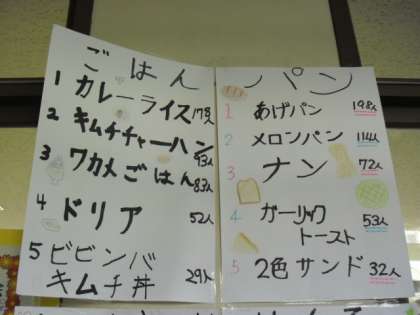 ごはん
1 カレーライス 179人
2 キムチチャーハン
93人
3 ワカメごはん
83人
4 ドリア 52人
5 ビビンバ
キムチ丼 29人
パン
1 あげパン 198人
2 メロンパン 114人
3 ナン 72人
4 ガーリック 53人
トースト
5 2色サンド 32人